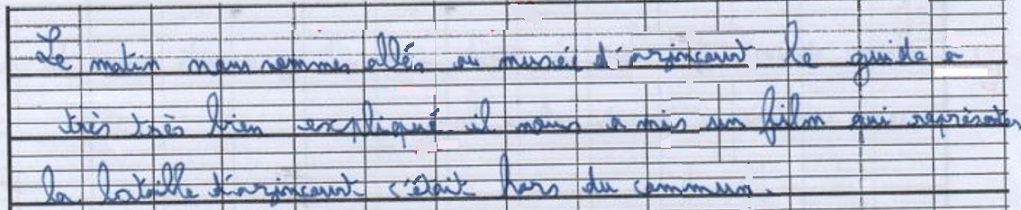 Le matin nous sommes allés au muséé d'arzincourt le guide a
très très bien expliqué il nous a mis un film qui représenter
la bataille d'arzincourt c'était hors du commun.